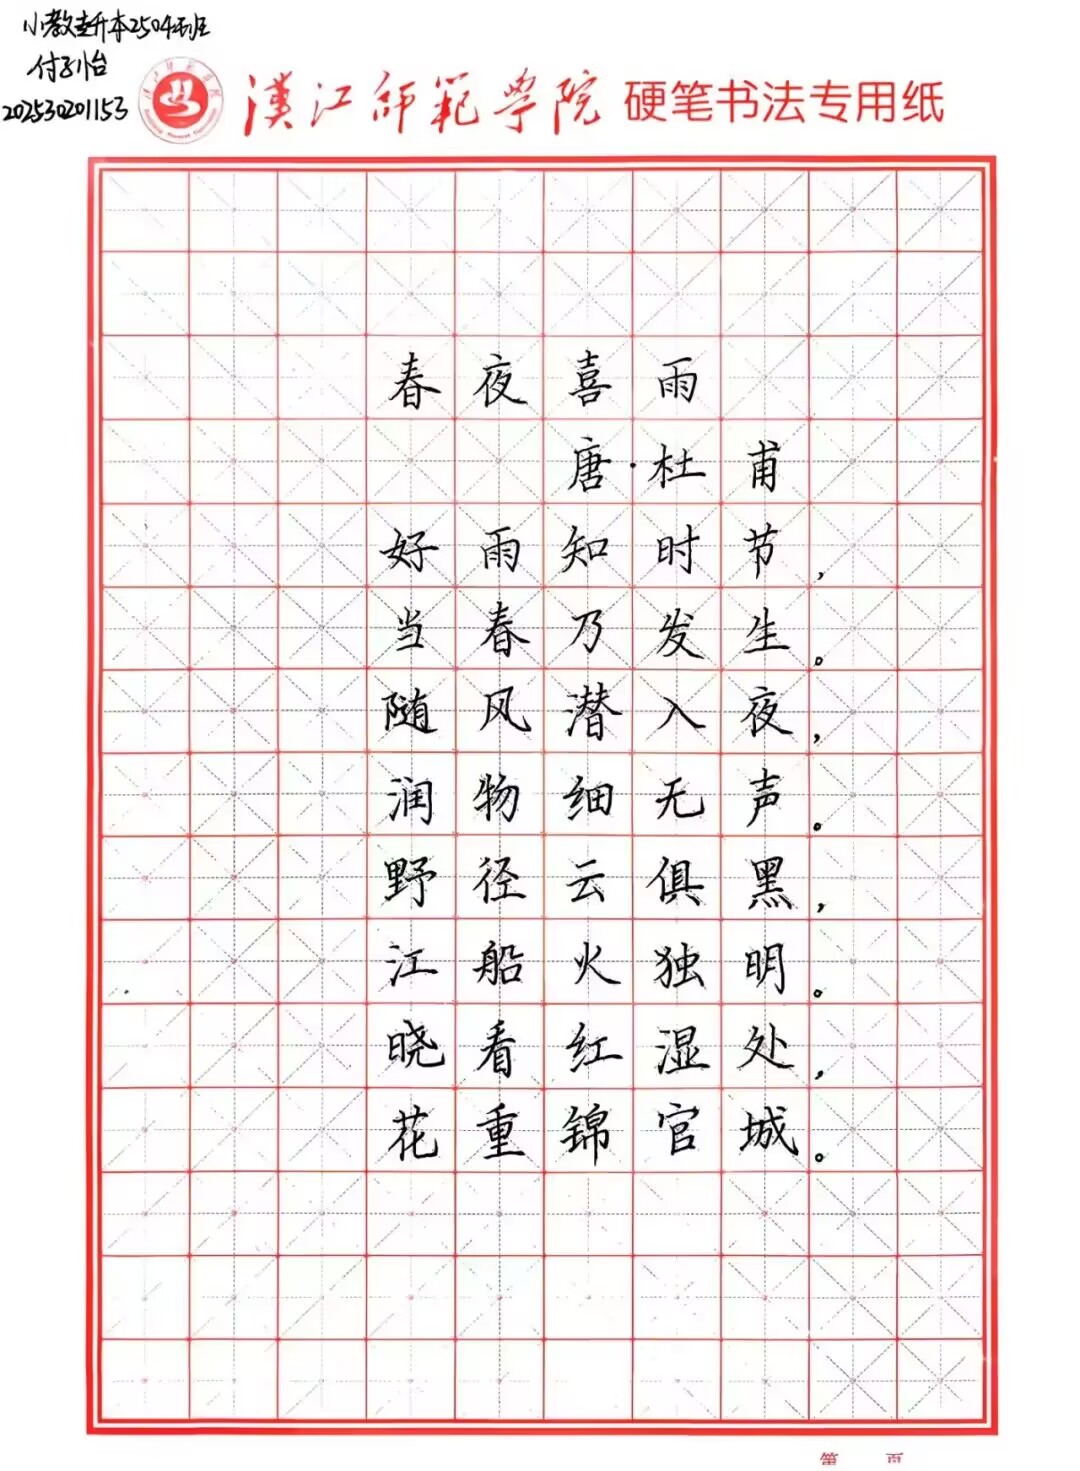 小教专升本2504班
付子怡
202530201153
漢江師範學院 硬笔书法专用纸
春夜喜雨
唐·杜甫
好雨知时节，
当春乃发生。
随风潜入夜，
润物细无声。
野径云俱黑，
江船火独明。
晓看红湿处，
花重锦官城。
第 页